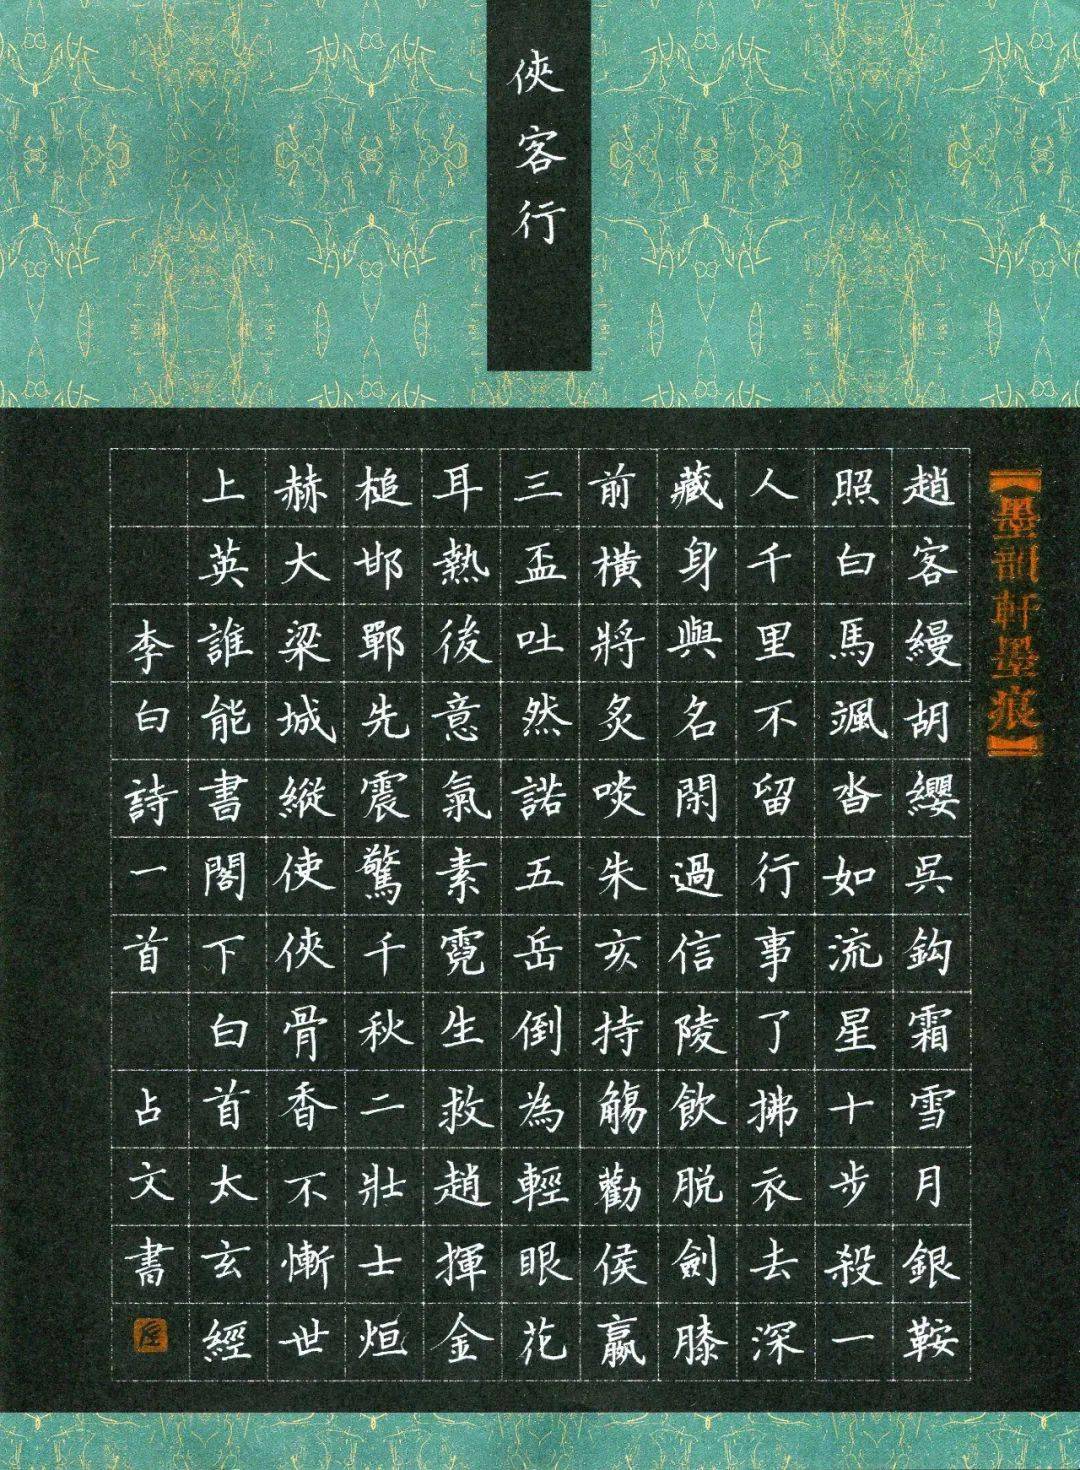 俠客行
【墨韻軒墨痕】
趙客縵胡纓吳鈎霜雪月銀鞍
照白馬颯沓如流星十步殺一
人千里不留行事了拂衣去深
藏身與名閑過信陵飲脫劍膝
前橫將炙啖朱亥持觴勸侯嬴
三盃吐然諾五岳倒為輕眼花
耳熱後意氣素霓生救趙揮金
槌邯鄲先震驚千秋二壯士烜
赫大梁城縱使俠骨香不慚世
上英誰能書閣下白首太玄經
李白詩一首 占文書